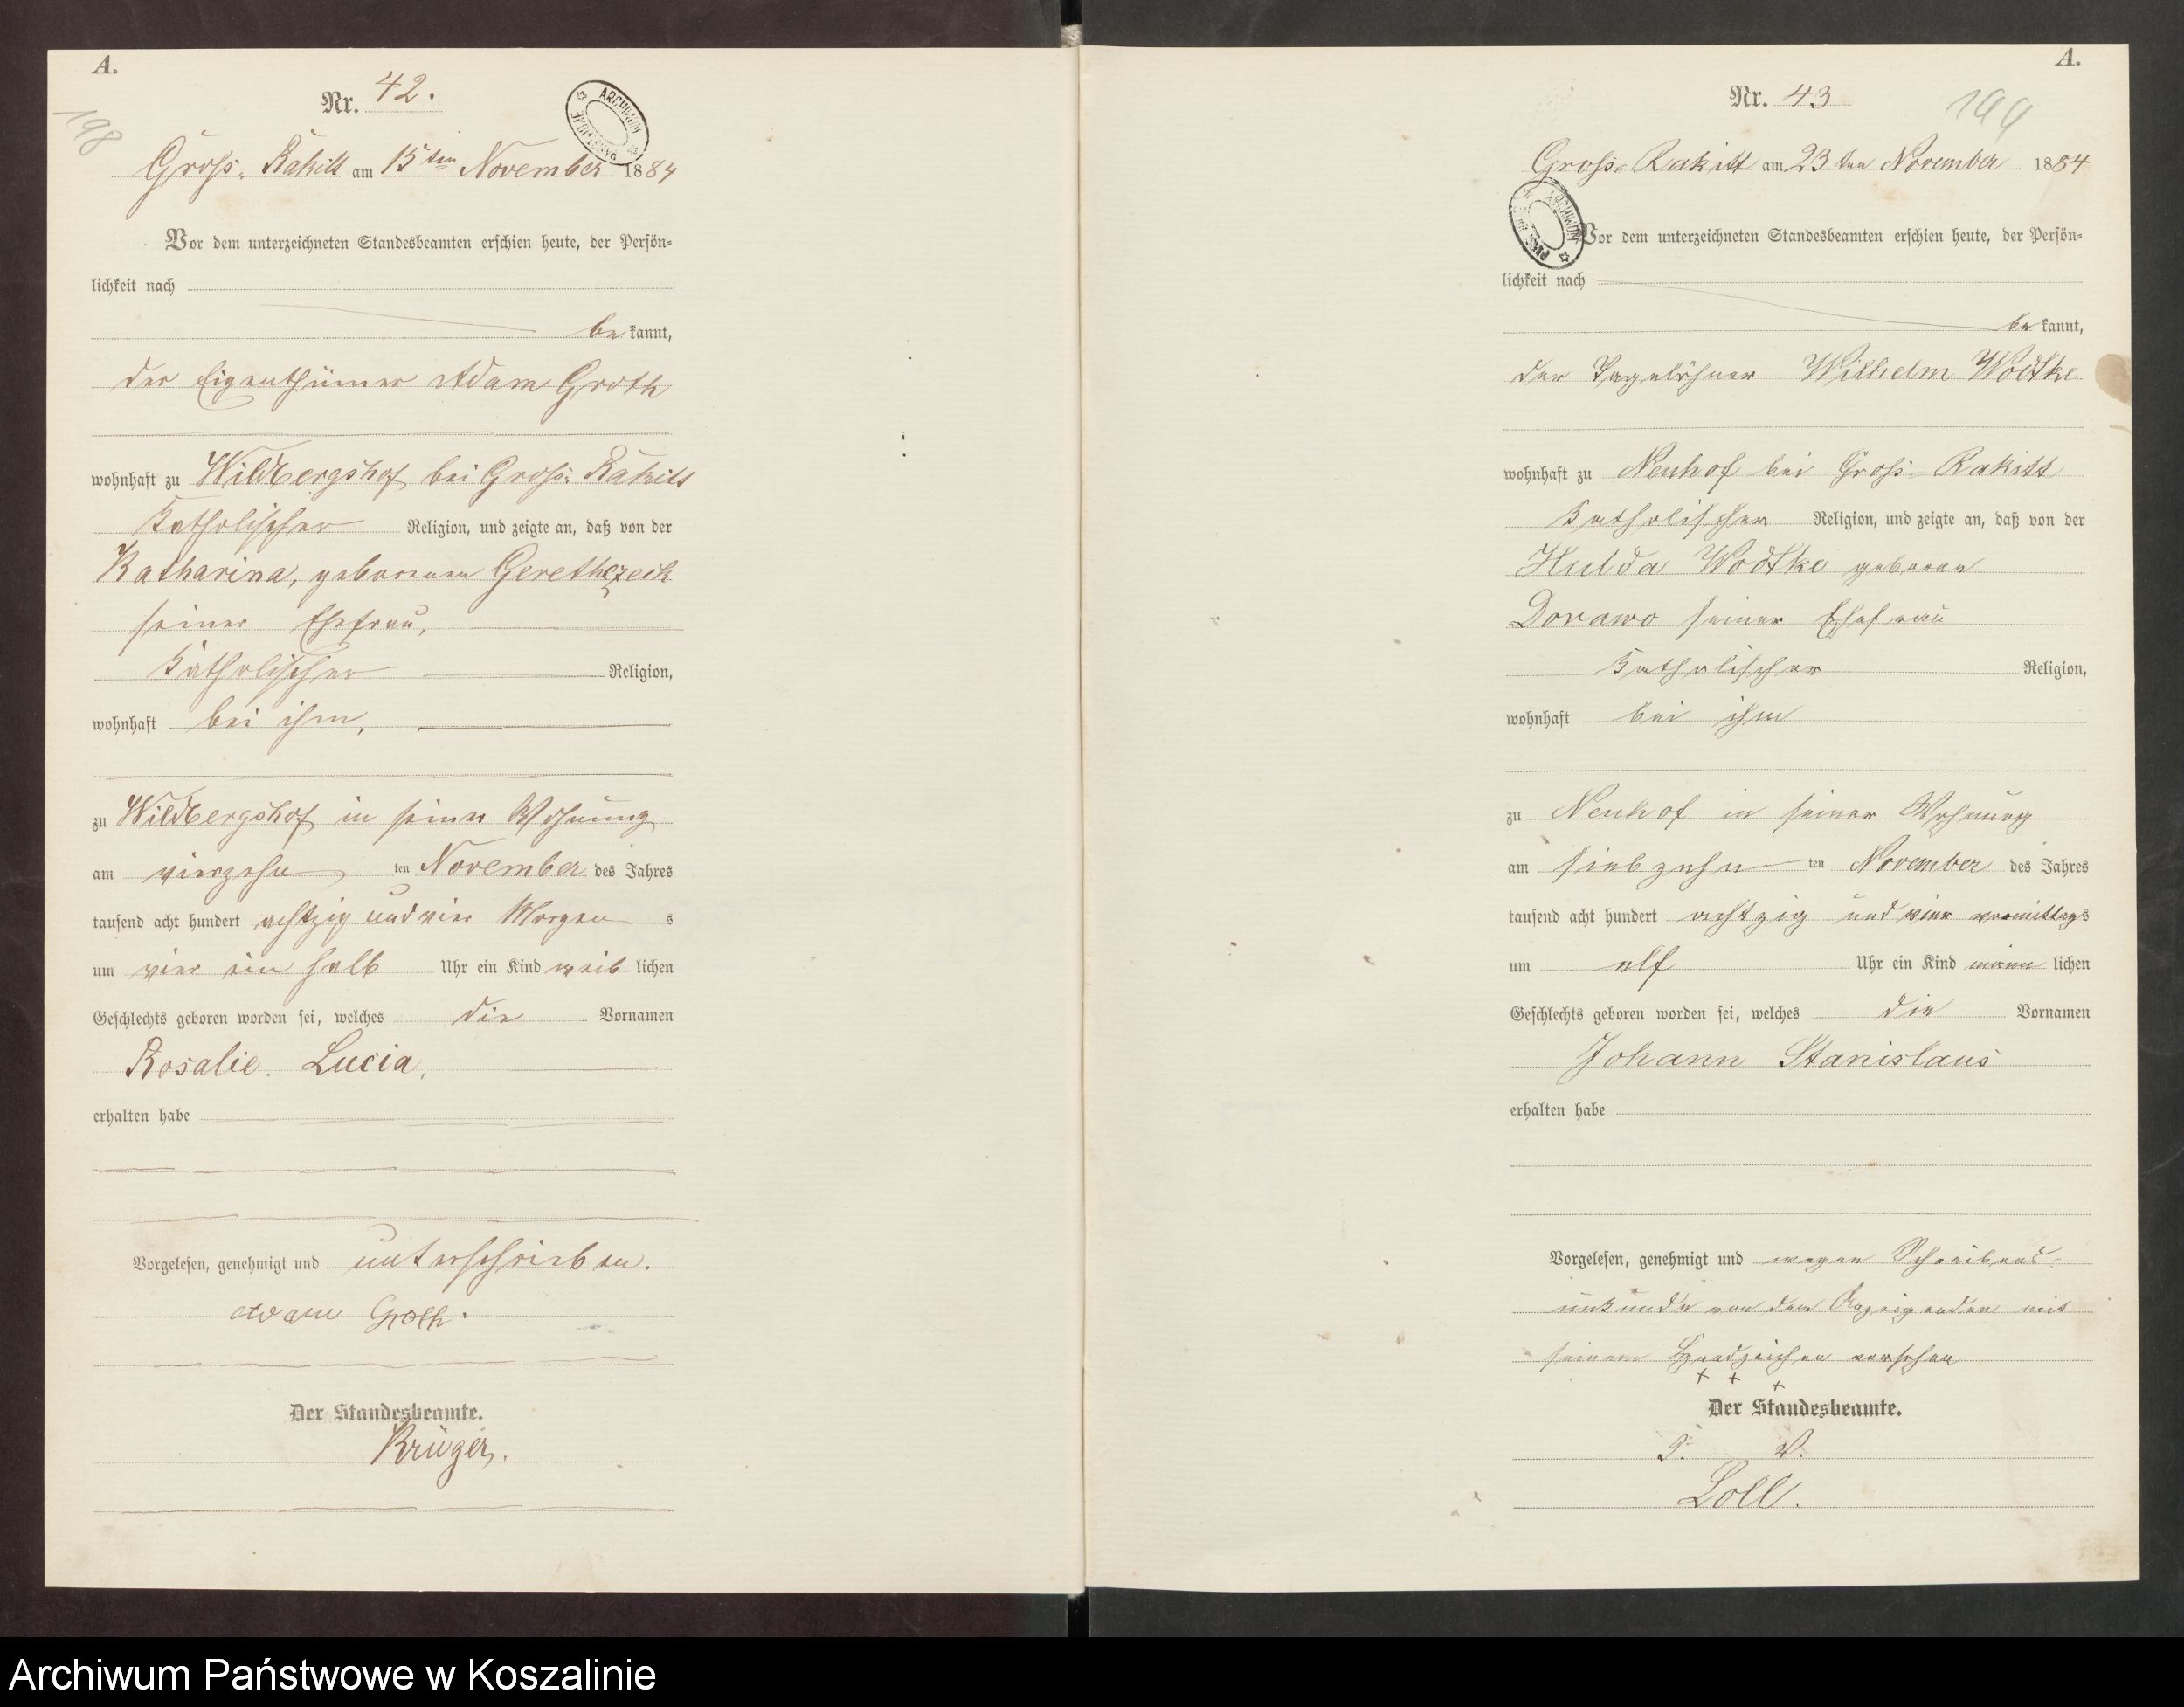 A.
Nr. 42.
198
ARCHIWUM PAŃSTWOWE
Groß-Rakitt am 15ten November 1884
Vor dem unterzeichneten Standesbeamten erschien heute, der Persön-
lichkeit nach
be kannt,
der Eigenthümer Adam Groth
wohnhaft zu Wildbergshof bei Groß-Rakitt
katholischer Religion, und zeigte an, daß von der
Katharina, geborenen Gerethczeck
seiner Ehefrau,
katholischer Religion,
wohnhaft bei ihm,
zu Wildbergshof in seiner Wohnung
am vierzehn ten November des Jahres
tausend acht hundert achtzig und vier Morgen s
um vier ein halb Uhr ein Kind weib lichen
Geschlechts geboren worden sei, welches die Vornamen
Rosalie. Lucia.
erhalten habe
Vorgelesen, genehmigt und unterschrieben.
Adam Groth.
Der Standesbeamte.
Krüger.
A.
Nr. 43
199
Groß-Rakitt am 23ten November 1884
ARCHIWUM
Vor dem unterzeichneten Standesbeamten erschien heute, der Persön-
lichkeit nach
be kannt,
der Tagelöhner Wilhelm Wodtke
wohnhaft zu Neuhof bei Groß-Rakitt
katholischer Religion, und zeigte an, daß von der
Hulda Wodtke geboren
Dorawo seiner Ehefrau
katholischer Religion,
wohnhaft bei ihm
zu Neuhof in seiner Wohnung
am siebzehn ten November des Jahres
tausend acht hundert achtzig und vier vormittags
um elf Uhr ein Kind männ lichen
Geschlechts geboren worden sei, welches die Vornamen
Johann Stanislaus
erhalten habe
Vorgelesen, genehmigt und wegen Schreibens-
unkunde von dem Anzeigenden mit
seinem Handzeichen versehen
+ + +
Der Standesbeamte.
I. V.
Loll.
Archiwum Państwowe w Koszalinie